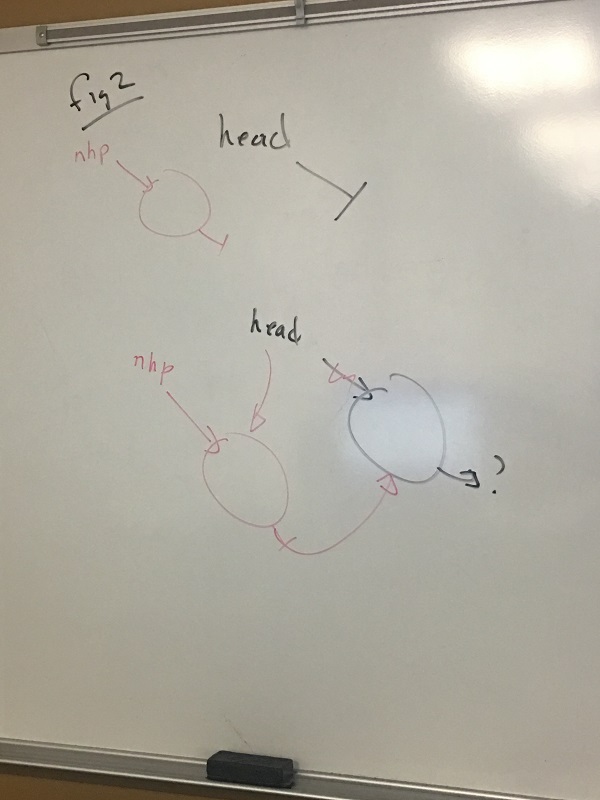 fig 2
nhp
head
head
nhp
?